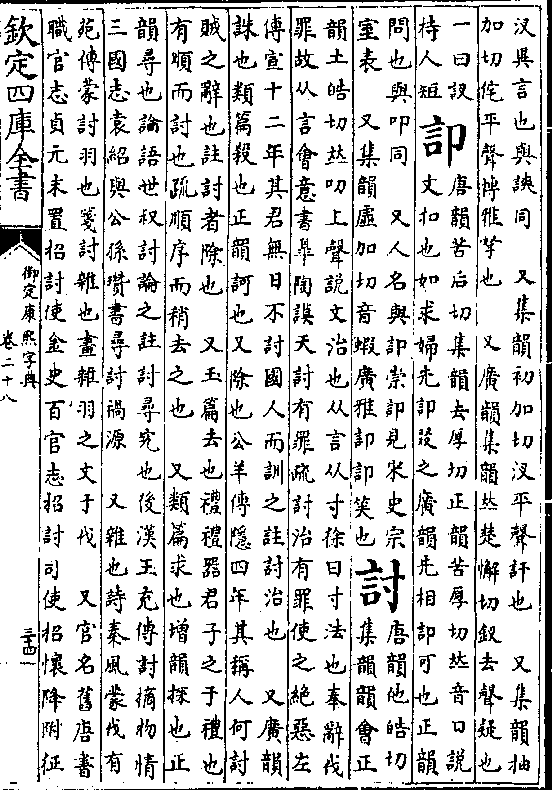 異言也與 同 又集韻初加切 平聲訐也 又集韻抽
加切侘平聲博雅拏也 又廣韻集韻𠀤楚懈切釵去聲疑也
一曰 唐韻苦后切集韻去厚切正韻苦厚切𠀤音口說
持人短 𧥣 文扣也如求婦先𧥣叕之廣韻先相𧥣可也正韻
問也與叩同 又人名與𧥣崇𧥣見宋史宗 唐韻他皓切
室表 又集韻虛加切音蝦廣雅𧥣𧥣笑也 討 集韻韻會正
韻土皓切𠀤叨上聲說文治也从言从寸徐曰寸法也奉辭伐
罪故从言會意書臯陶謨天討有罪疏討治有罪使之絕惡左
傳宣十二年其君無日不討國人而訓之註討治也 又廣韻
誅也類篇殺也正韻訶也又除也公羊傳隱四年其稱人何討
賊之辭也註討者除也 又玉篇去也禮禮器君子之于禮也
有順而討也疏順序而稍去之也 又類篇求也增韻探也正
韻尋也論語世叔討論之註討尋究也後漢王充傳討摘物情
三國志袁紹與公孫瓚書尋討禍源 又雜也詩秦風蒙伐有
苑傳蒙討羽也箋討雜也畫雜羽之文于伐 又官名舊唐書
職官志貞元末置招討使金史百官志招討司使招懷降附征
欽定四庫全書
御定康熙字典
卷二十八
三十四